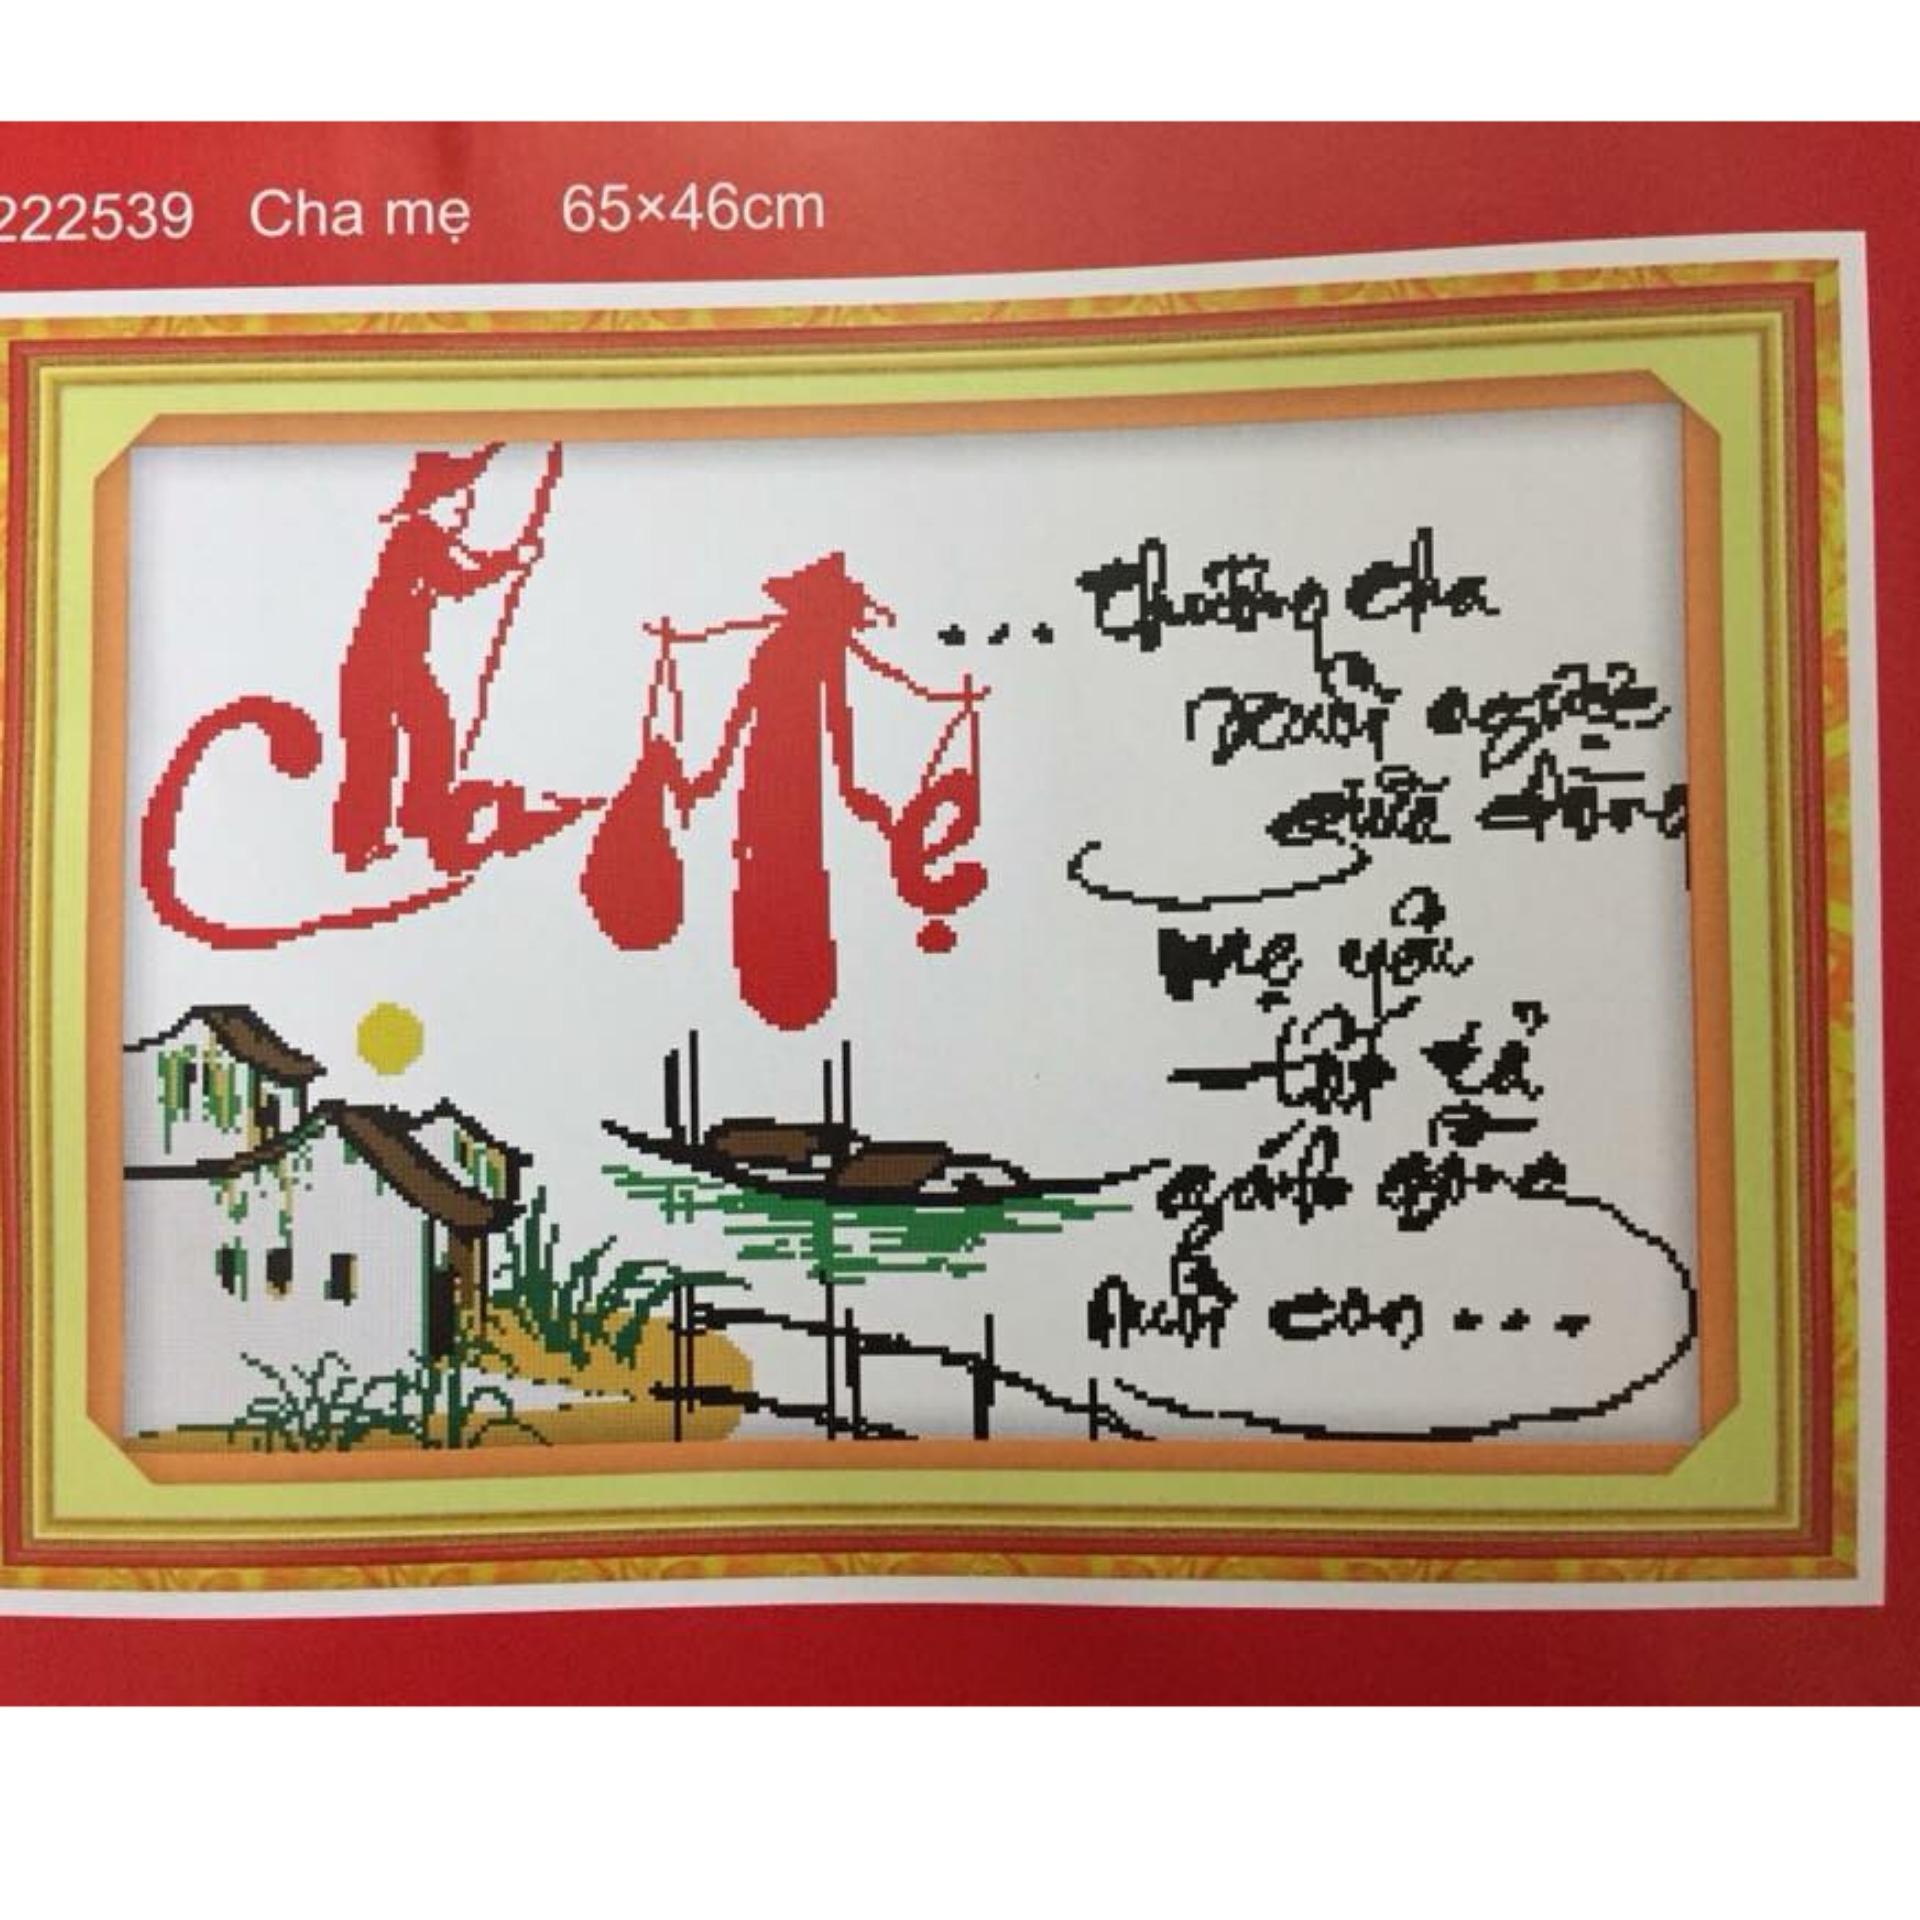 222539 Cha mẹ 65×46cm
Cha Mẹ
... thương cha
xuôi ngược
giữa dòng
mẹ yêu
tất tả
gánh gồng
nuôi con ...